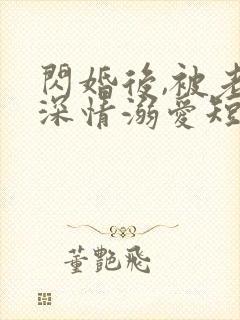 閃婚後,被老
深情溺愛短
董艷飛